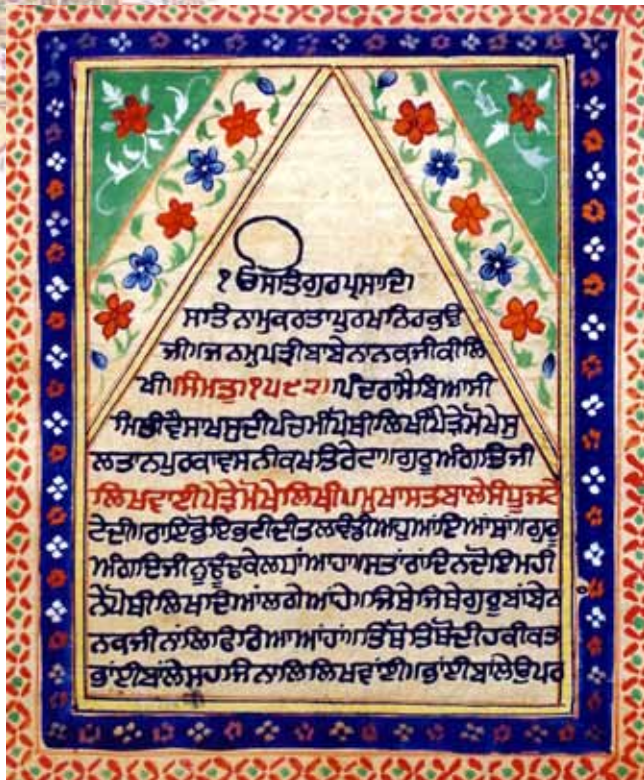 ੴ ਸਤਿਗੁਰਪ੍ਰਸਾਦਿ॥
ਸਤਿਨਾਮੁਕਰਤਾਪੁਰਖਾਨਿਰਭਉ
ਜੀ॥ਜਨਮੁਪਤ੍ਰੀਬਾਬੇਨਾਨਕਜੀਕੀਲਿ
ਖੀ॥ਸੰਮਤੁ੧੫੯੨॥ਪੰਦਰਾਸੈਬਿਆਸੀ
ਮਿਤੀਵੈਸਾਖਸੁਦੀਪੰਚਮੀਪੋਥੀਲਿਖੀਪੈੜੇਮੋਖੇਸੁ
ਲਤਾਨਪੁਰਕਾਵਸਨੀਕਖਤਿਰੇਟਾ॥ਗੁਰੂਅੰਗਦਿਜੀ
ਲਿਖਵਾਈਪੈੜੇਮੋਖੇਲਿਖੀ
ਟੇਦੀ॥ਰਾਇਭੋਇਭਟੀਦੀਤਲਵੰਡੀ ਗੁਰੂ
ਅੰਗਦਿਜੀਨੂ ਆਹਾ॥ਸਤਾਰਾਦਿਨਦੋਇਮਹੀ
ਨੇਪੋਥੀਲਿਖਦਿਆਂਲਗੇਆਹੇ॥ਜਿਥੇਜਿਥੇਗੁਰੂਬਾਬੇਨ
ਨਕਜੀ ਫਿਰਿਆਆਹਾ॥ਤਿਥੋਤਿਥੋਦੀਹਕੀਕਤ
ਭਾਈਬਾਲੇਸੁਹਜਿਨਾਲਿਲਿਖਵਾਈ॥ਭਾਈਬਾਲੇਉਪਰ